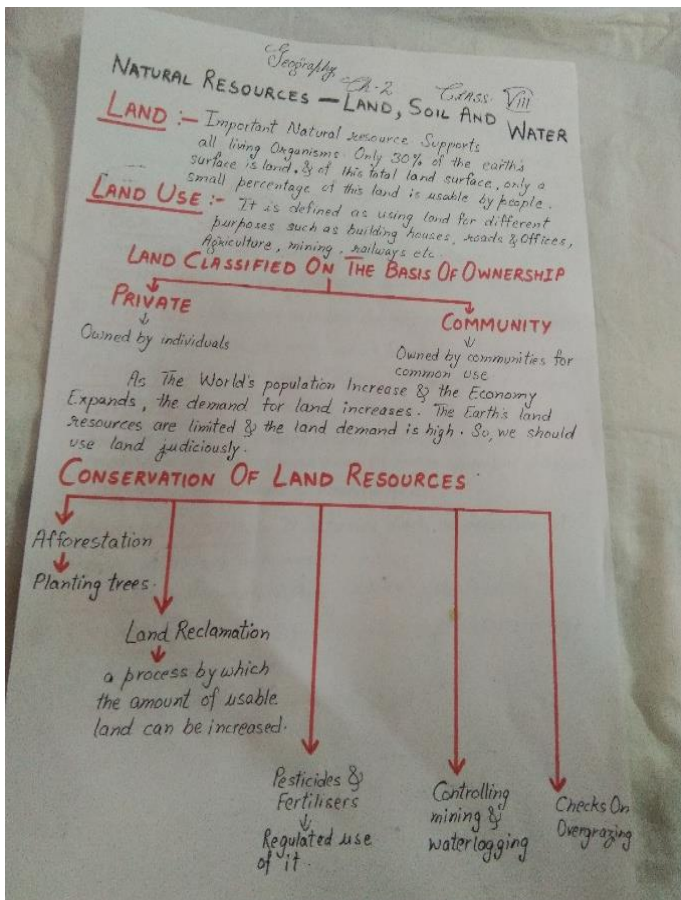 Geography Ch-2 CLASS VIII
NATURAL RESOURCES — LAND, SOIL AND WATER
LAND :- Important Natural resource Supports
all living Organisms. Only 30% of the earth's
surface is land, & of this total land surface, only a
small percentage of this land is usable by people.
LAND USE :- It is defined as using land for different
purposes such as building houses, roads & Offices,
Agriculture, mining, railways etc.
LAND CLASSIFIED ON THE BASIS OF OWNERSHIP
PRIVATE
Owned by individuals
COMMUNITY
Owned by communities for
common use
As The World's population Increase & the Economy
Expands, the demand for land increases. The Earth's land
resources are limited & the land demand is high. So, we should
use land judiciously.
CONSERVATION OF LAND RESOURCES
Afforestation
Planting trees.
Land Reclamation
a process by which
the amount of usable
land can be increased.
Pesticides &
Fertilisers
Regulated use
of it.
Controlling
mining &
waterlogging
Checks On
Overgrazing